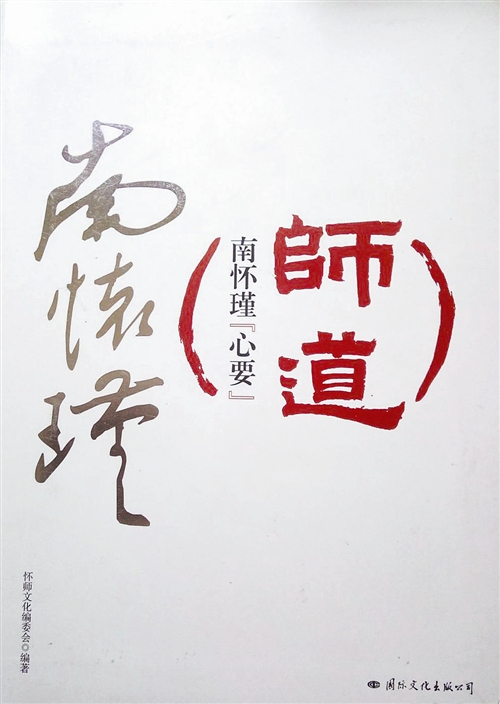 師道
南怀瑾『心要』
南懷瑾
怀师文化编委会◎编著
国际文化出版公司